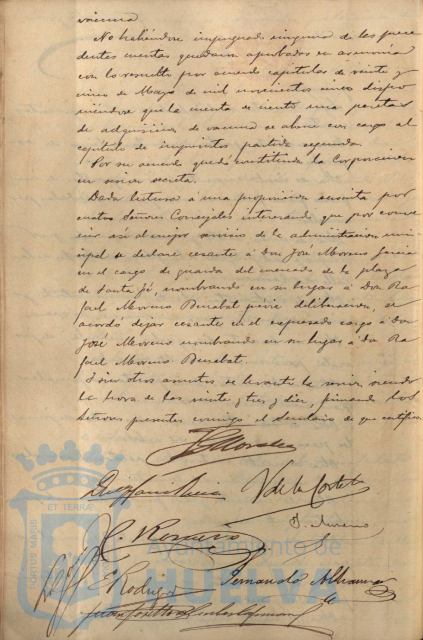 vacuna
No habiéndose impugnado ninguna de las prece
dentes cuentas quedaron aprobadas en armonía
con lo resuelto por acuerdo capitular de veinte y
cinco de Mayo de mil novecientos cinco dispo
niéndose que la cuenta de ciento una pesetas
de adquisición de vacuna se abone con cargo al
capítulo de imprevistos partida segunda.
Por su acuerdo quedó constituida la Corporación
en sesión secreta.
Dada lectura á una proposición suscrita por
cuatro Señores Concejales interesando que por conve
nir así al mejor servicio de la administración muni
cipal se declare cesante á Don José Moreno Garcia
en el cargo de guarda del mercado de la plaza
de Santa Fé, nombrando en su lugar á Don Ra
fael Moreno Benabat previa deliberación, se
acordó dejar cesante en el expresado cargo á Don
José Moreno nombrando en su lugar á Don Ra
fael Moreno Benabat.
I sin otros asuntos se levantó la sesión siendo
la hora de las veinte y tres y diez, firmando los
Señores presentes conmigo el Secretario de que certifico.
Morales
V de la Corte
J. Moreno
C. Romero
E Rodrig
Fernando
PORTUS MARIS
ET TERRAE
Ayuntamiento de
HUELVA